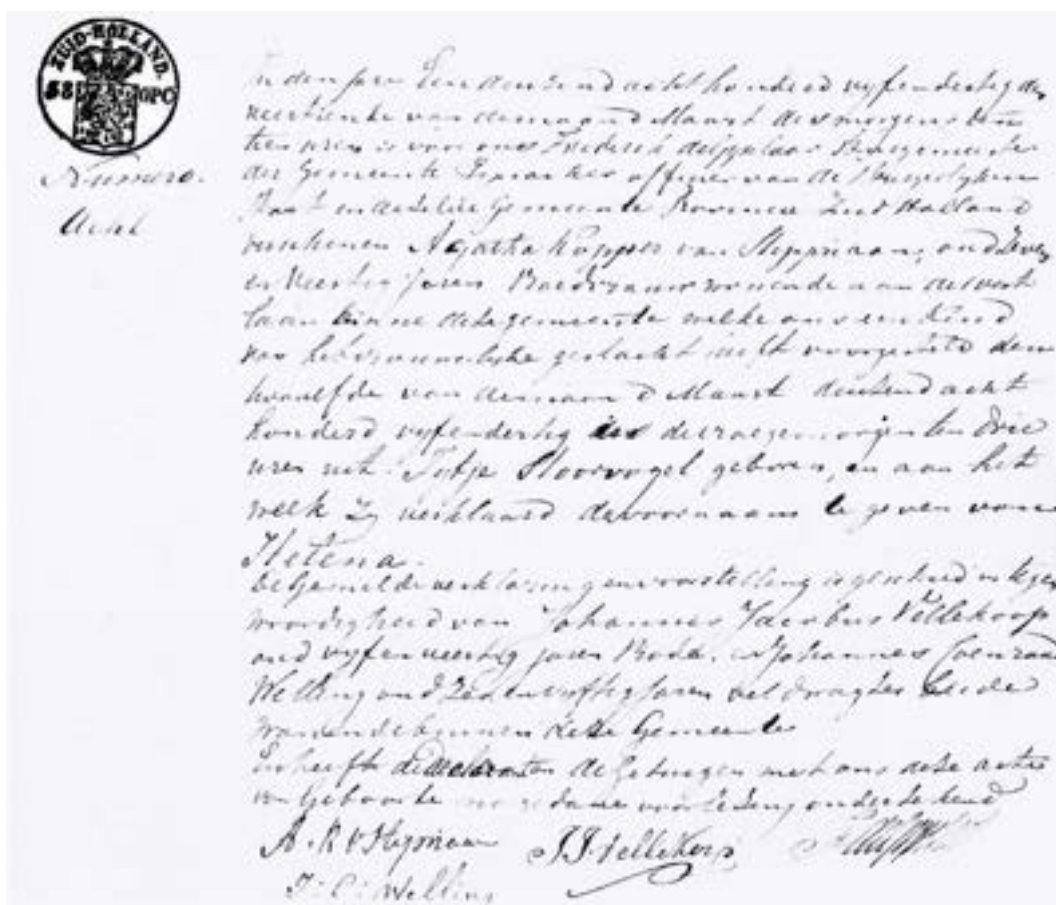 ZUID-HOLLAND.
58 OPC
Numero.
Acht
In den jare Een duizend acht honderd vyfendertig den
veertiende van de maand Maart des morgens ten
tien uren is voor ons Frederik Burgemeester
der Gemeente officier van de Burgerlyken
Staat en dezelve Gemeente Provincie Zuid Holland
verschenen Agatha van oud
en Veertig Jaren Vroedvrouw wonende aan
laan binne deze gemeente welke ons een kind
van het vrouwelyke geslacht heeft voorgesteld den
twaalfde van de maand Maart duizend acht
honderd vyfendertig des morgens ten drie
uren uit Tytje Sloorvogel geboren, en aan het
welk zy verklaard de voornaam te geven van
Helena.
de Gemelde verklaring en voorstelling is geschied in tegen
woordigheid van Johannes Jacobus Vellekoop
oud vyfenveertig jaren Bode, en Johannes Coenraad
Welling oud jaren beide
wonende binnen deze Gemeente
En heeft de en de Getuigen met ons deze acte
van Geboorte na gedane voorlezing onderteekend
A. K v
J. J. Vellekoop
J: C: Welling